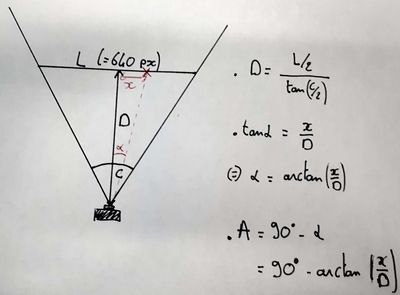 L (=640 px)
x
D
α
C
. D = (L/2)/(tan(C/2))
. tanα = x/D
(=) α = arctan(x/D)
. A = 90° - α
= 90° - arctan(x/D)